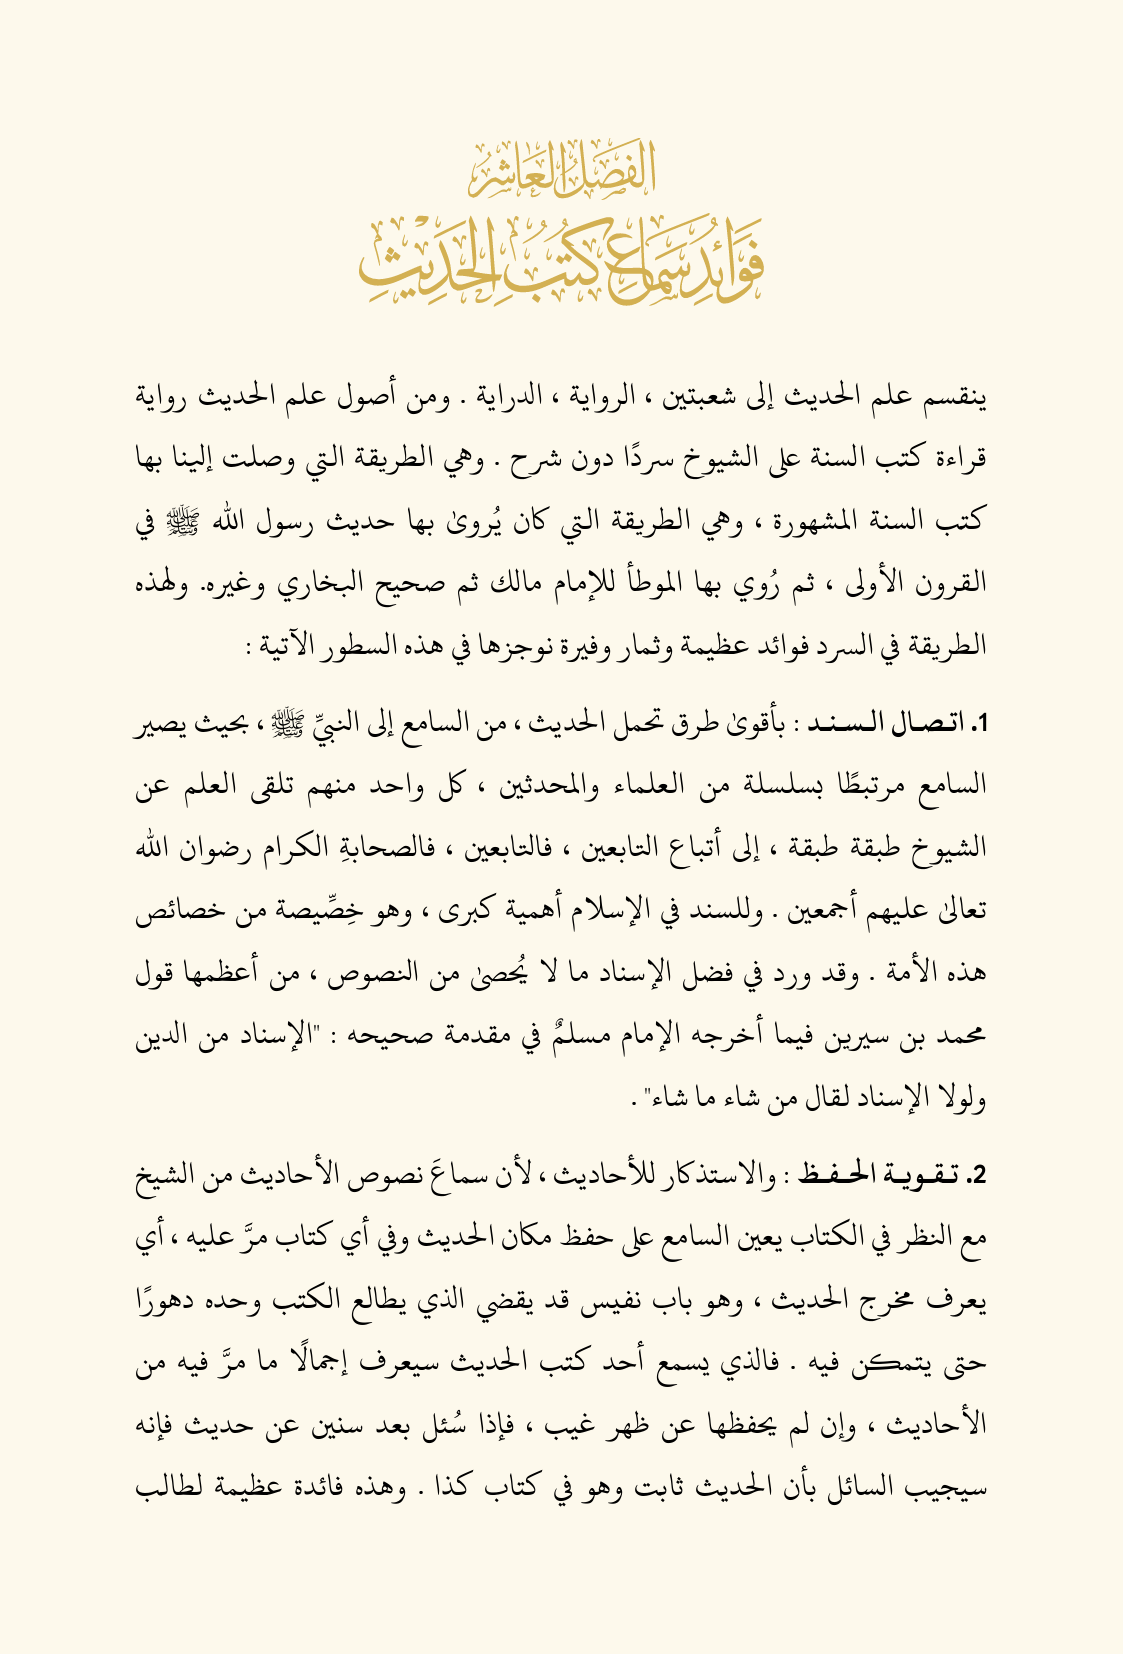 الفَصْلُ العَاشِرُ
فَوَائِدُ سَمَاعِ كُتُبِ الحَدِيْثِ
ينقسم علم الحديث إلى شعبتين ، الرواية ، الدراية . ومن أصول علم الحديث رواية
قراءة كتب السنة على الشيوخ سردًا دون شرح . وهي الطريقة التي وصلت إلينا بها
كتب السنة المشهورة ، وهي الطريقة التي كان يُروىٰ بها حديث رسول الله ﷺ في
القرون الأولى ، ثم رُوي بها الموطأ للإمام مالك ثم صحيح البخاري وغيره. ولهذه
الطريقة في السرد فوائد عظيمة وثمار وفيرة نوجزها في هذه السطور الآتية :
1. اتـصـال الـسـنـد : بأقوىٰ طرق تحمل الحديث ، من السامع إلى النبيِّ ﷺ ، بحيث يصير
السامع مرتبطًا بسلسلة من العلماء والمحدثين ، كل واحد منهم تلقى العلم عن
الشيوخ طبقة طبقة ، إلى أتباع التابعين ، فالتابعين ، فالصحابةِ الكرام رضوان الله
تعالىٰ عليهم أجمعين . وللسند في الإسلام أهمية كبرى ، وهو خِصِّيصة من خصائص
هذه الأمة . وقد ورد في فضل الإسناد ما لا يُحصىٰ من النصوص ، من أعظمها قول
محمد بن سيرين فيما أخرجه الإمام مسلمٌ في مقدمة صحيحه : "الإسناد من الدين
ولولا الإسناد لقال من شاء ما شاء" .
2. تـقـويـة الحـفـظ : والاستذكار للأحاديث ، لأن سماعَ نصوص الأحاديث من الشيخ
مع النظر في الكتاب يعين السامع على حفظ مكان الحديث وفي أي كتاب مرَّ عليه ، أي
يعرف مخرج الحديث ، وهو باب نفيس قد يقضي الذي يطالع الكتب وحده دهورًا
حتى يتمكن فيه . فالذي يسمع أحد كتب الحديث سيعرف إجمالًا ما مرَّ فيه من
الأحاديث ، وإن لم يحفظها عن ظهر غيب ، فإذا سُئل بعد سنين عن حديث فإنه
سيجيب السائل بأن الحديث ثابت وهو في كتاب كذا . وهذه فائدة عظيمة لطالب